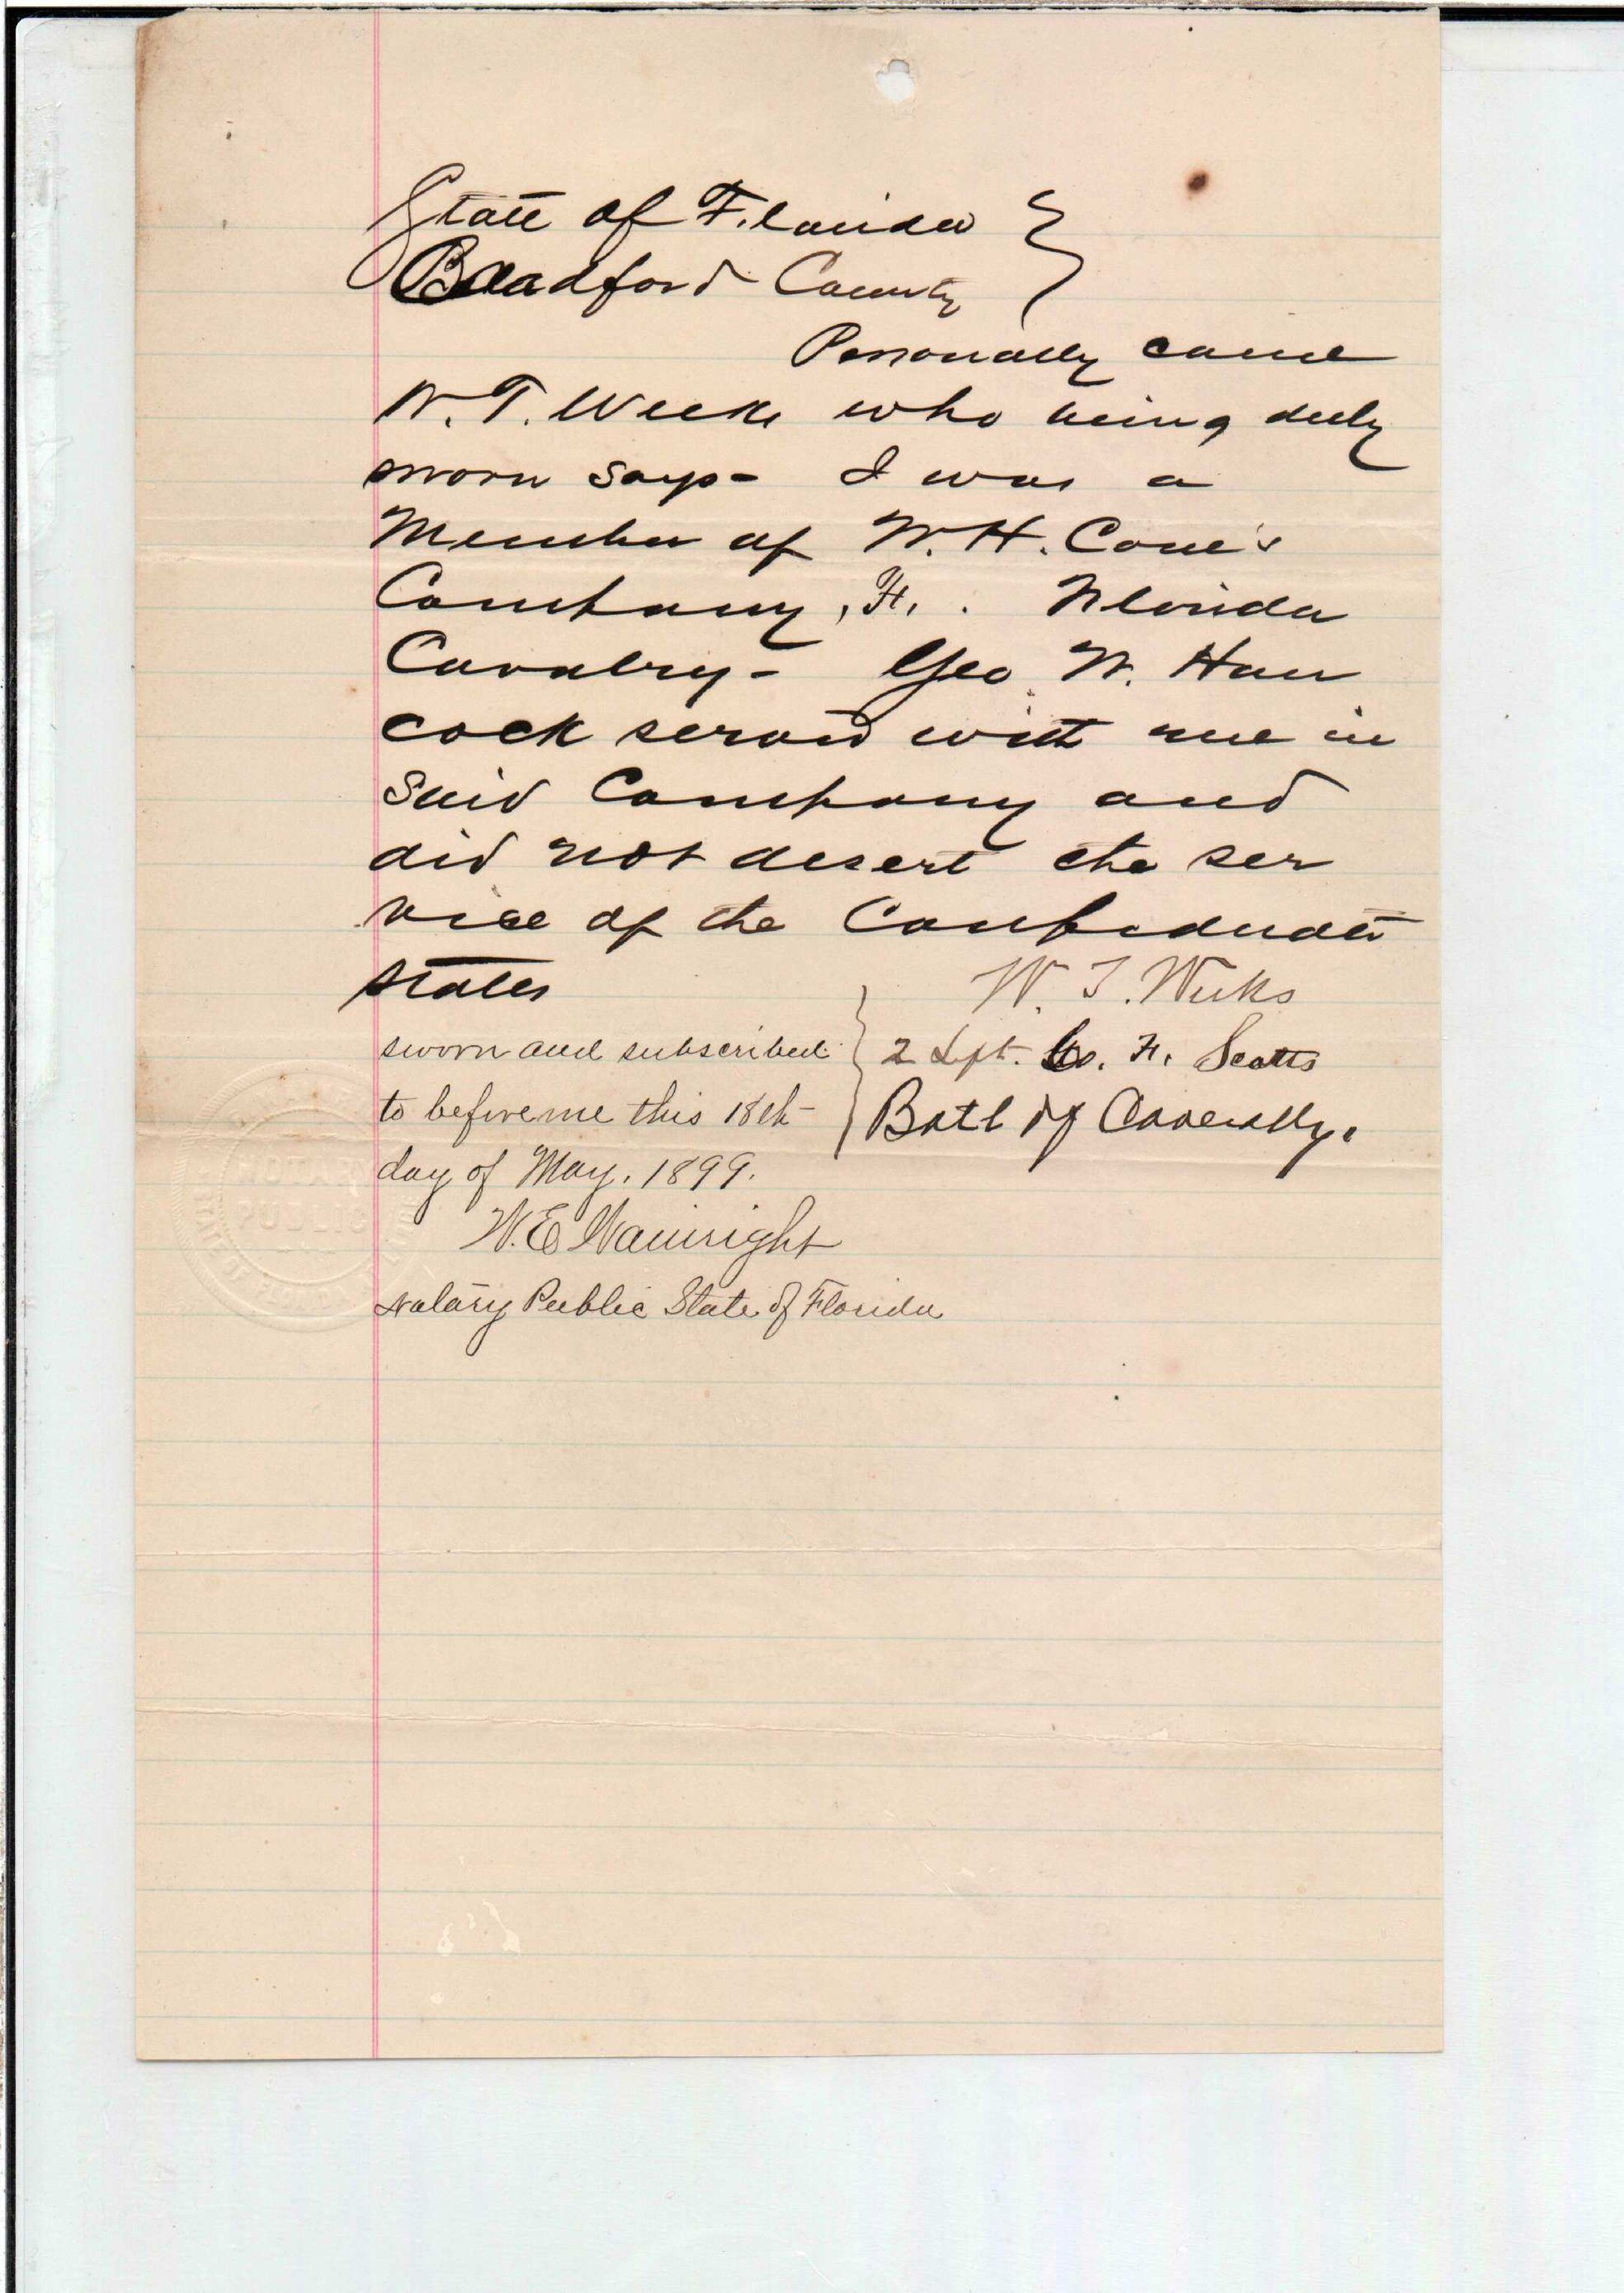 State of Florida
Bradford County
Personally came
W. T. Weeks who being duly
sworn says - I was a
Member of W. H. Cone's
Company, F, . Florida
Cavalry - Geo W. Han
cock served with me in
said Company and
did not desert the ser
vice of the Confederate
states
W. T. Weeks
2 Lept. Co. F. Scotts
Batl of Caveally.
sworn and subscribed
to before me this 18th
day of May. 1899.
W. E. Wainright
Notary Public State of Florida